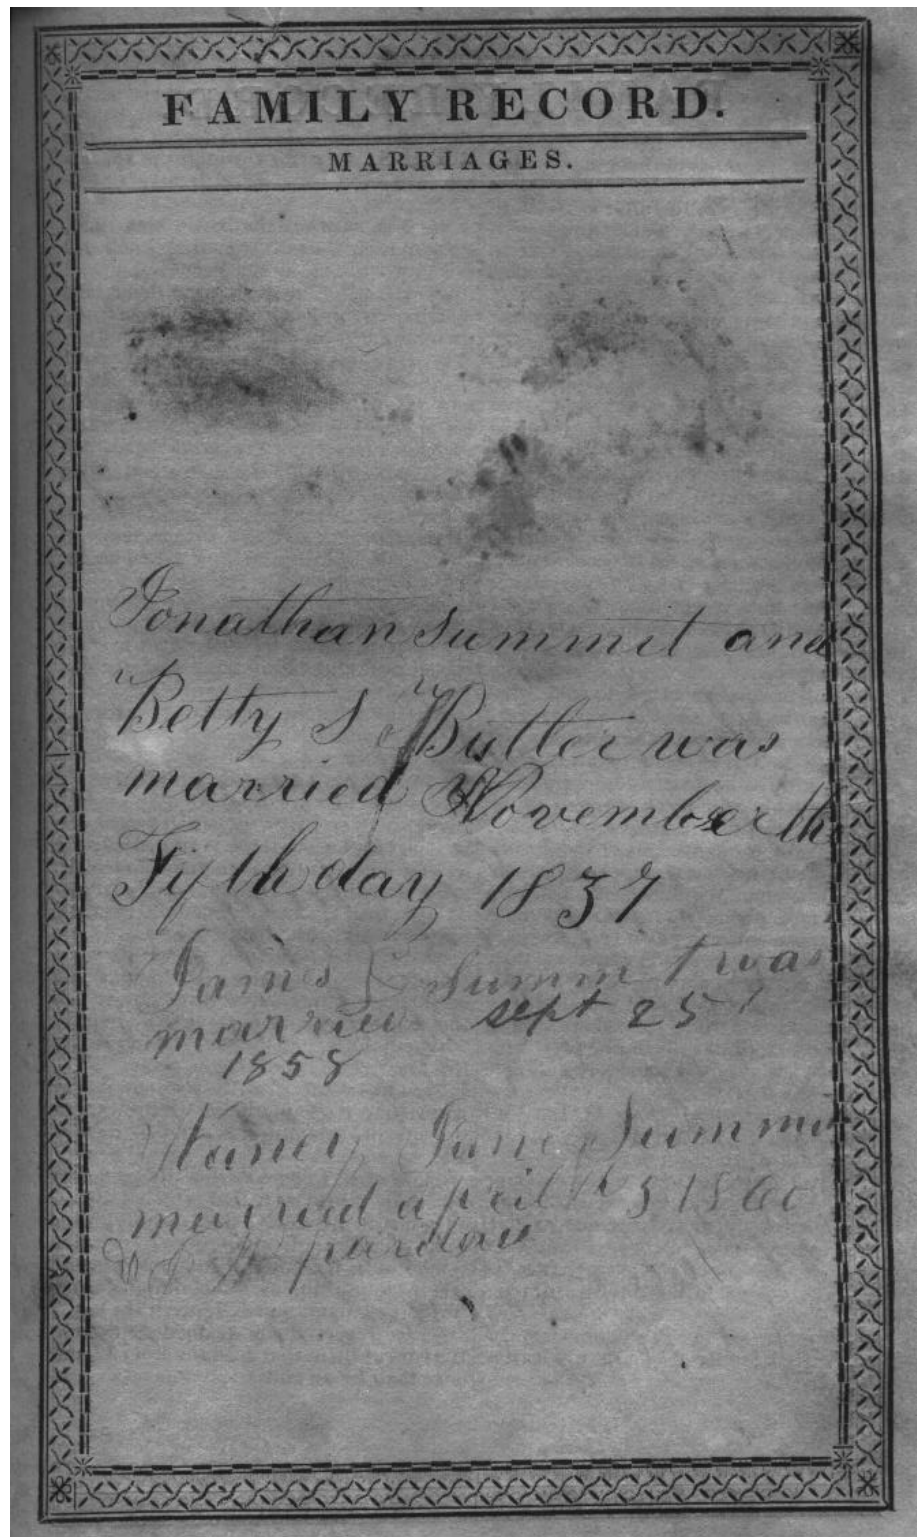 FAMILY RECORD.
MARRIAGES.
Jonathan Summit and
Betty S Butler was
married November the
Fifth day 1837
James Summit was
married sept 25
1858
Nancy Jane Summit
married april 1860